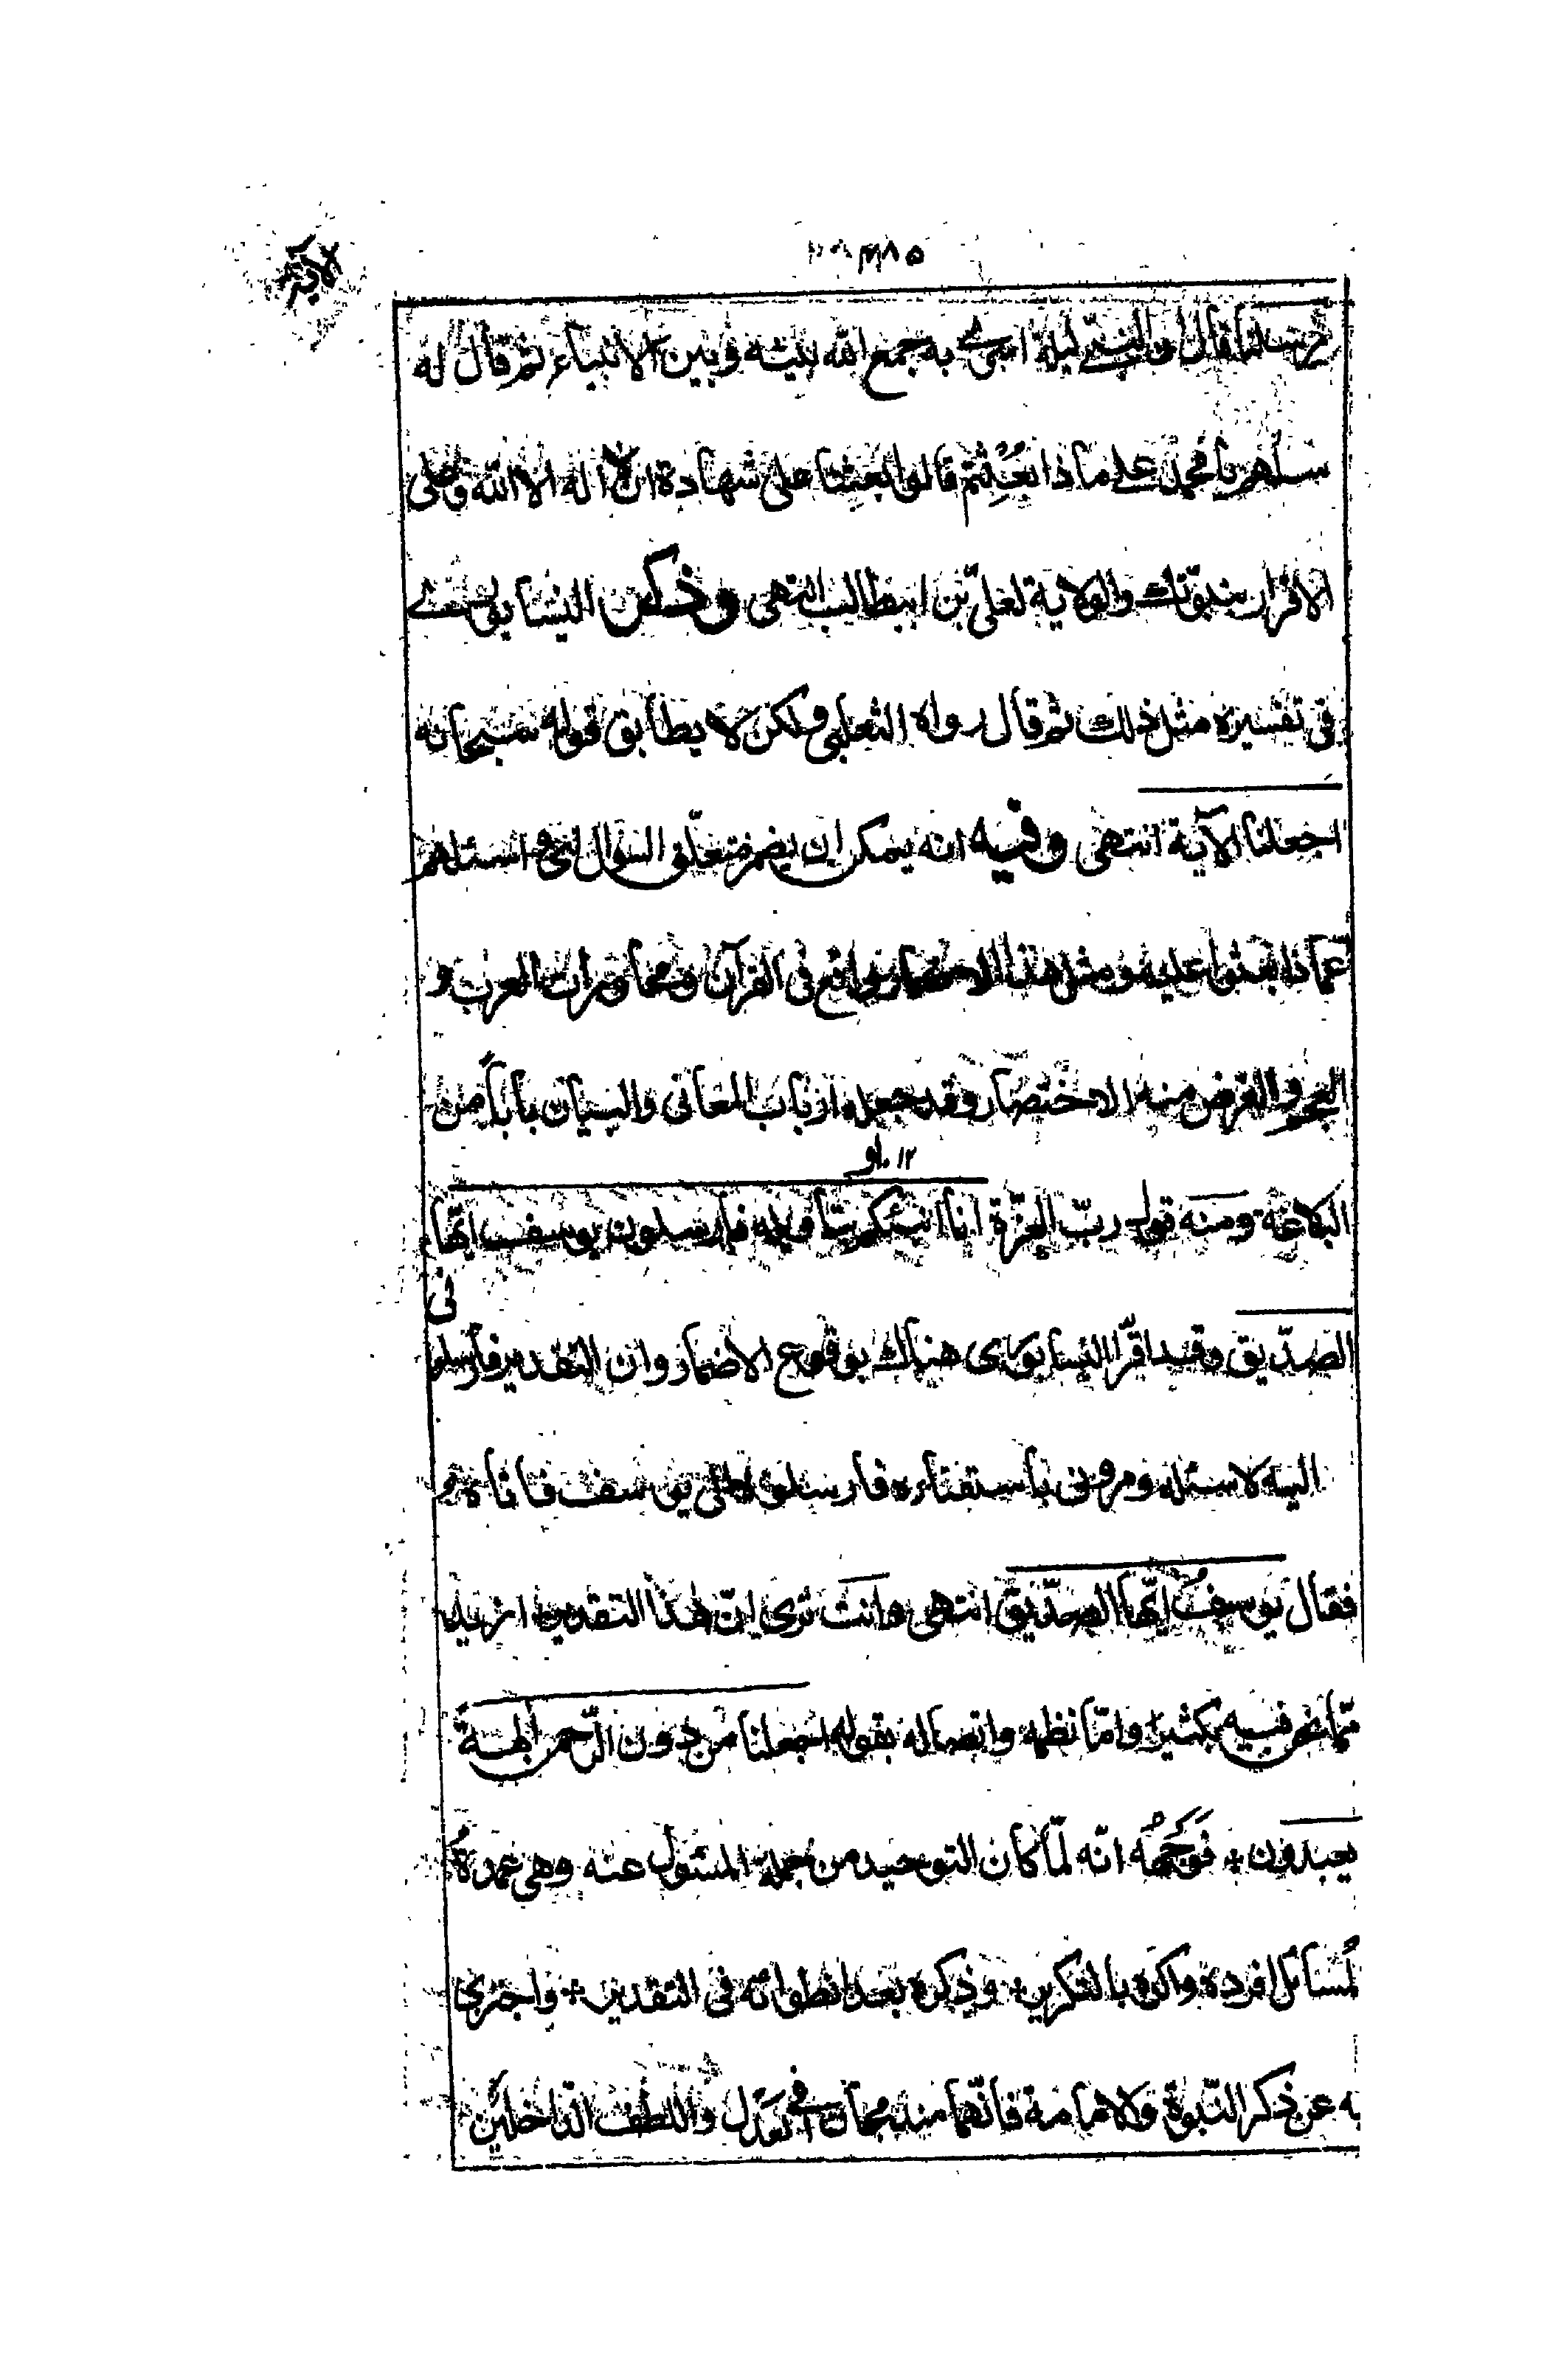 الآية
من رسلنا قال ان النبي ليلة اسرى به جمع الله بينه و بين الانبياء ثم قال له
سلهم يا محمد على ماذا بُعِثتم قالوا بعثنا على شهادة ان لا اله الا الله و على
الاقرار بنبوّتك والولاية لعلىّ بن ابيطالب انتهى وذكر النيسابورى
فى تفسيره مثل ذلك ثم قال رواه الثعلبى ولكن لا يطابق قوله سبحانه
اجعلنا الآية انتهى وفيه انه يمكن ان يضمر متعلّق السؤال نحو اسئلهم
عمّا ذا بعثوا عليه و مثل هذا الاضمار واقع فى القرآن و محاورات العرب و
العجم والغرض منه الاختصار وقد جعله ارباب المعانى والبيان باباً من
البلاغة ومنه قول ربّ العزّة انا انبئكم بتاويله فارسلون يوسف ايّها
الصدّيق وقد اقرّ النيسابورى هنالك بوقوع الاضمار وان التقدير فارسلونى
اليه لاسئله ومرونى باستفتاءه فارسلوه الى يوسف فاتاه و
فقال يوسفُ ايّها الصدّيق انتهى وانت ترى انّ هذا التقدير ازيد
ممّا نحن فيه بكثير وامّا نظمه واتصاله بقوله اجعلنا من دون الرّحمن آلهةً
يعبدون + فَوَجهُه انّه لمّا كان التوحيد من جملة المسئول عنه وهى عمدةُ
لمسائل افرده واكّده بالتكرير + وذكره بعد انطوائه فى التقدير + واجتزى
به عن ذكر النبّوة والامامة فانّهما مندمجان فى العدل واللطف الدّاخلين